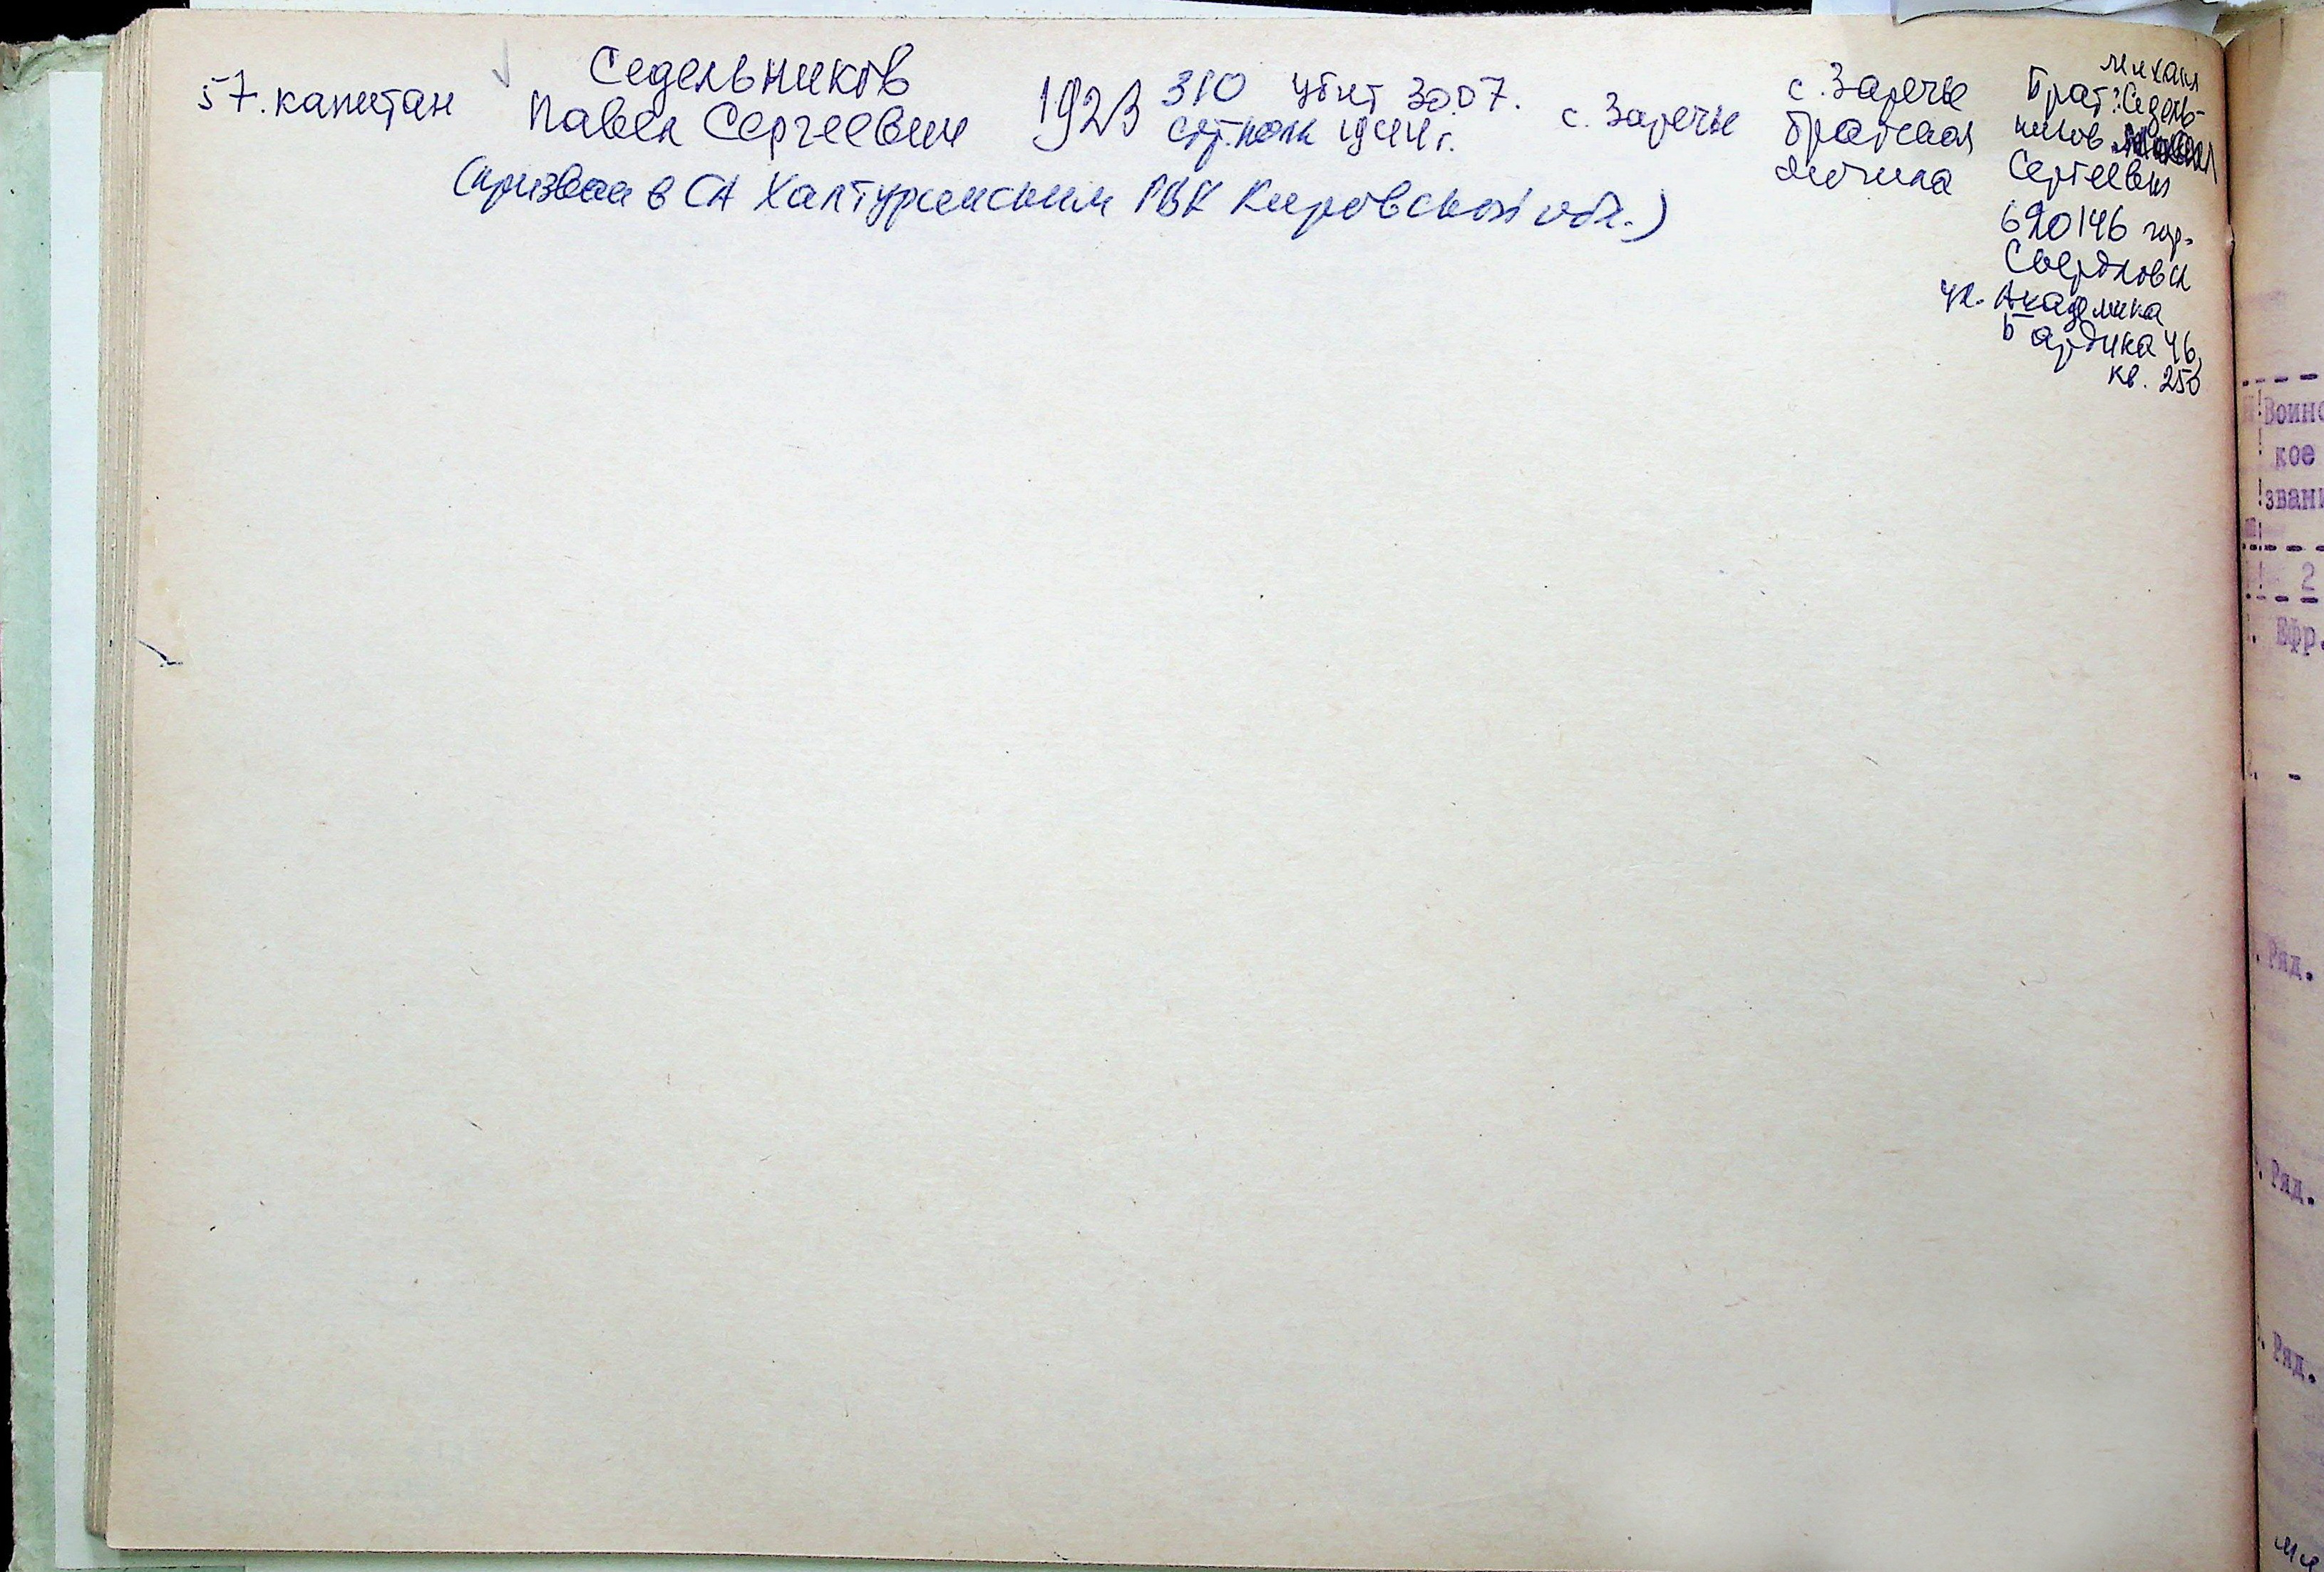 57. капитан
Седельников
Павел Сергеевич
1923
310
стр. полк
убит 30.07.
1944 г.
с. Заречье
с. Заречье
братская
могила
Михаил
Брат: Седель-
ников
Сергеевич
620146 гор.
Свердловск
ул. Академика
Бардина 46,
кв. 250
(призван в СА Халтуринским РВК Кировской обл.)
Воинс
кое
звани
2
Ефр.
-
Ряд.
Ряд.
Ряд.